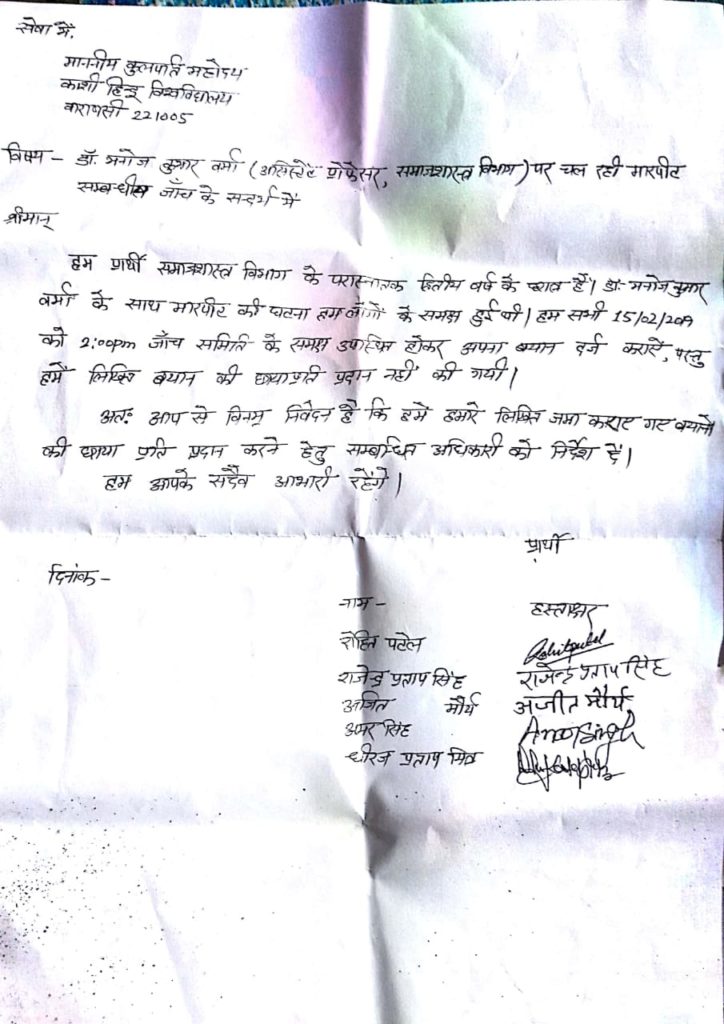 सेवा में,
माननीय कुलपति महोदय
काशी हिन्दू विश्वविद्यालय
वाराणसी 221005
विषय - डॉ. मनोज कुमार वर्मा (असिस्टेंट प्रोफेसर, समाजशास्त्र विभाग) पर चल रही मारपीट
सम्बन्धीत जाँच के सन्दर्भ में
श्रीमान्
हम प्रार्थी समाजशास्त्र विभाग के परास्नातक द्वितीय वर्ष के छात्र हैं। डॉ. मनोज कुमार
वर्मा के साथ मारपीट की घटना हम लोगों के समक्ष हुई थी। हम सभी 15/02/2019
को 2:00pm जाँच समिति के समक्ष उपस्थित होकर अपना बयान दर्ज कराऐ, परन्तु
हमें लिखित बयान की छायाप्रति प्रदान नहीं की गयी।
अतः आप से विनम्र निवेदन है कि हमें हमारे लिखित जमा कराए गए बयानो
की छाया प्रति प्रदान करने हेतु सम्बन्धित अधिकारी को निर्देश दें।
हम आपके सदैव आभारी रहेंगे।
प्रार्थी
दिनांक -
नाम - हस्ताक्षर
रोहित पटेल
राजेन्द्र प्रताप सिंह राजेन्द्र प्रताप सिंह
अजित मौर्य अजीत मौर्य
अमर सिंह Amar Singh
धीरज प्रताप मित्र